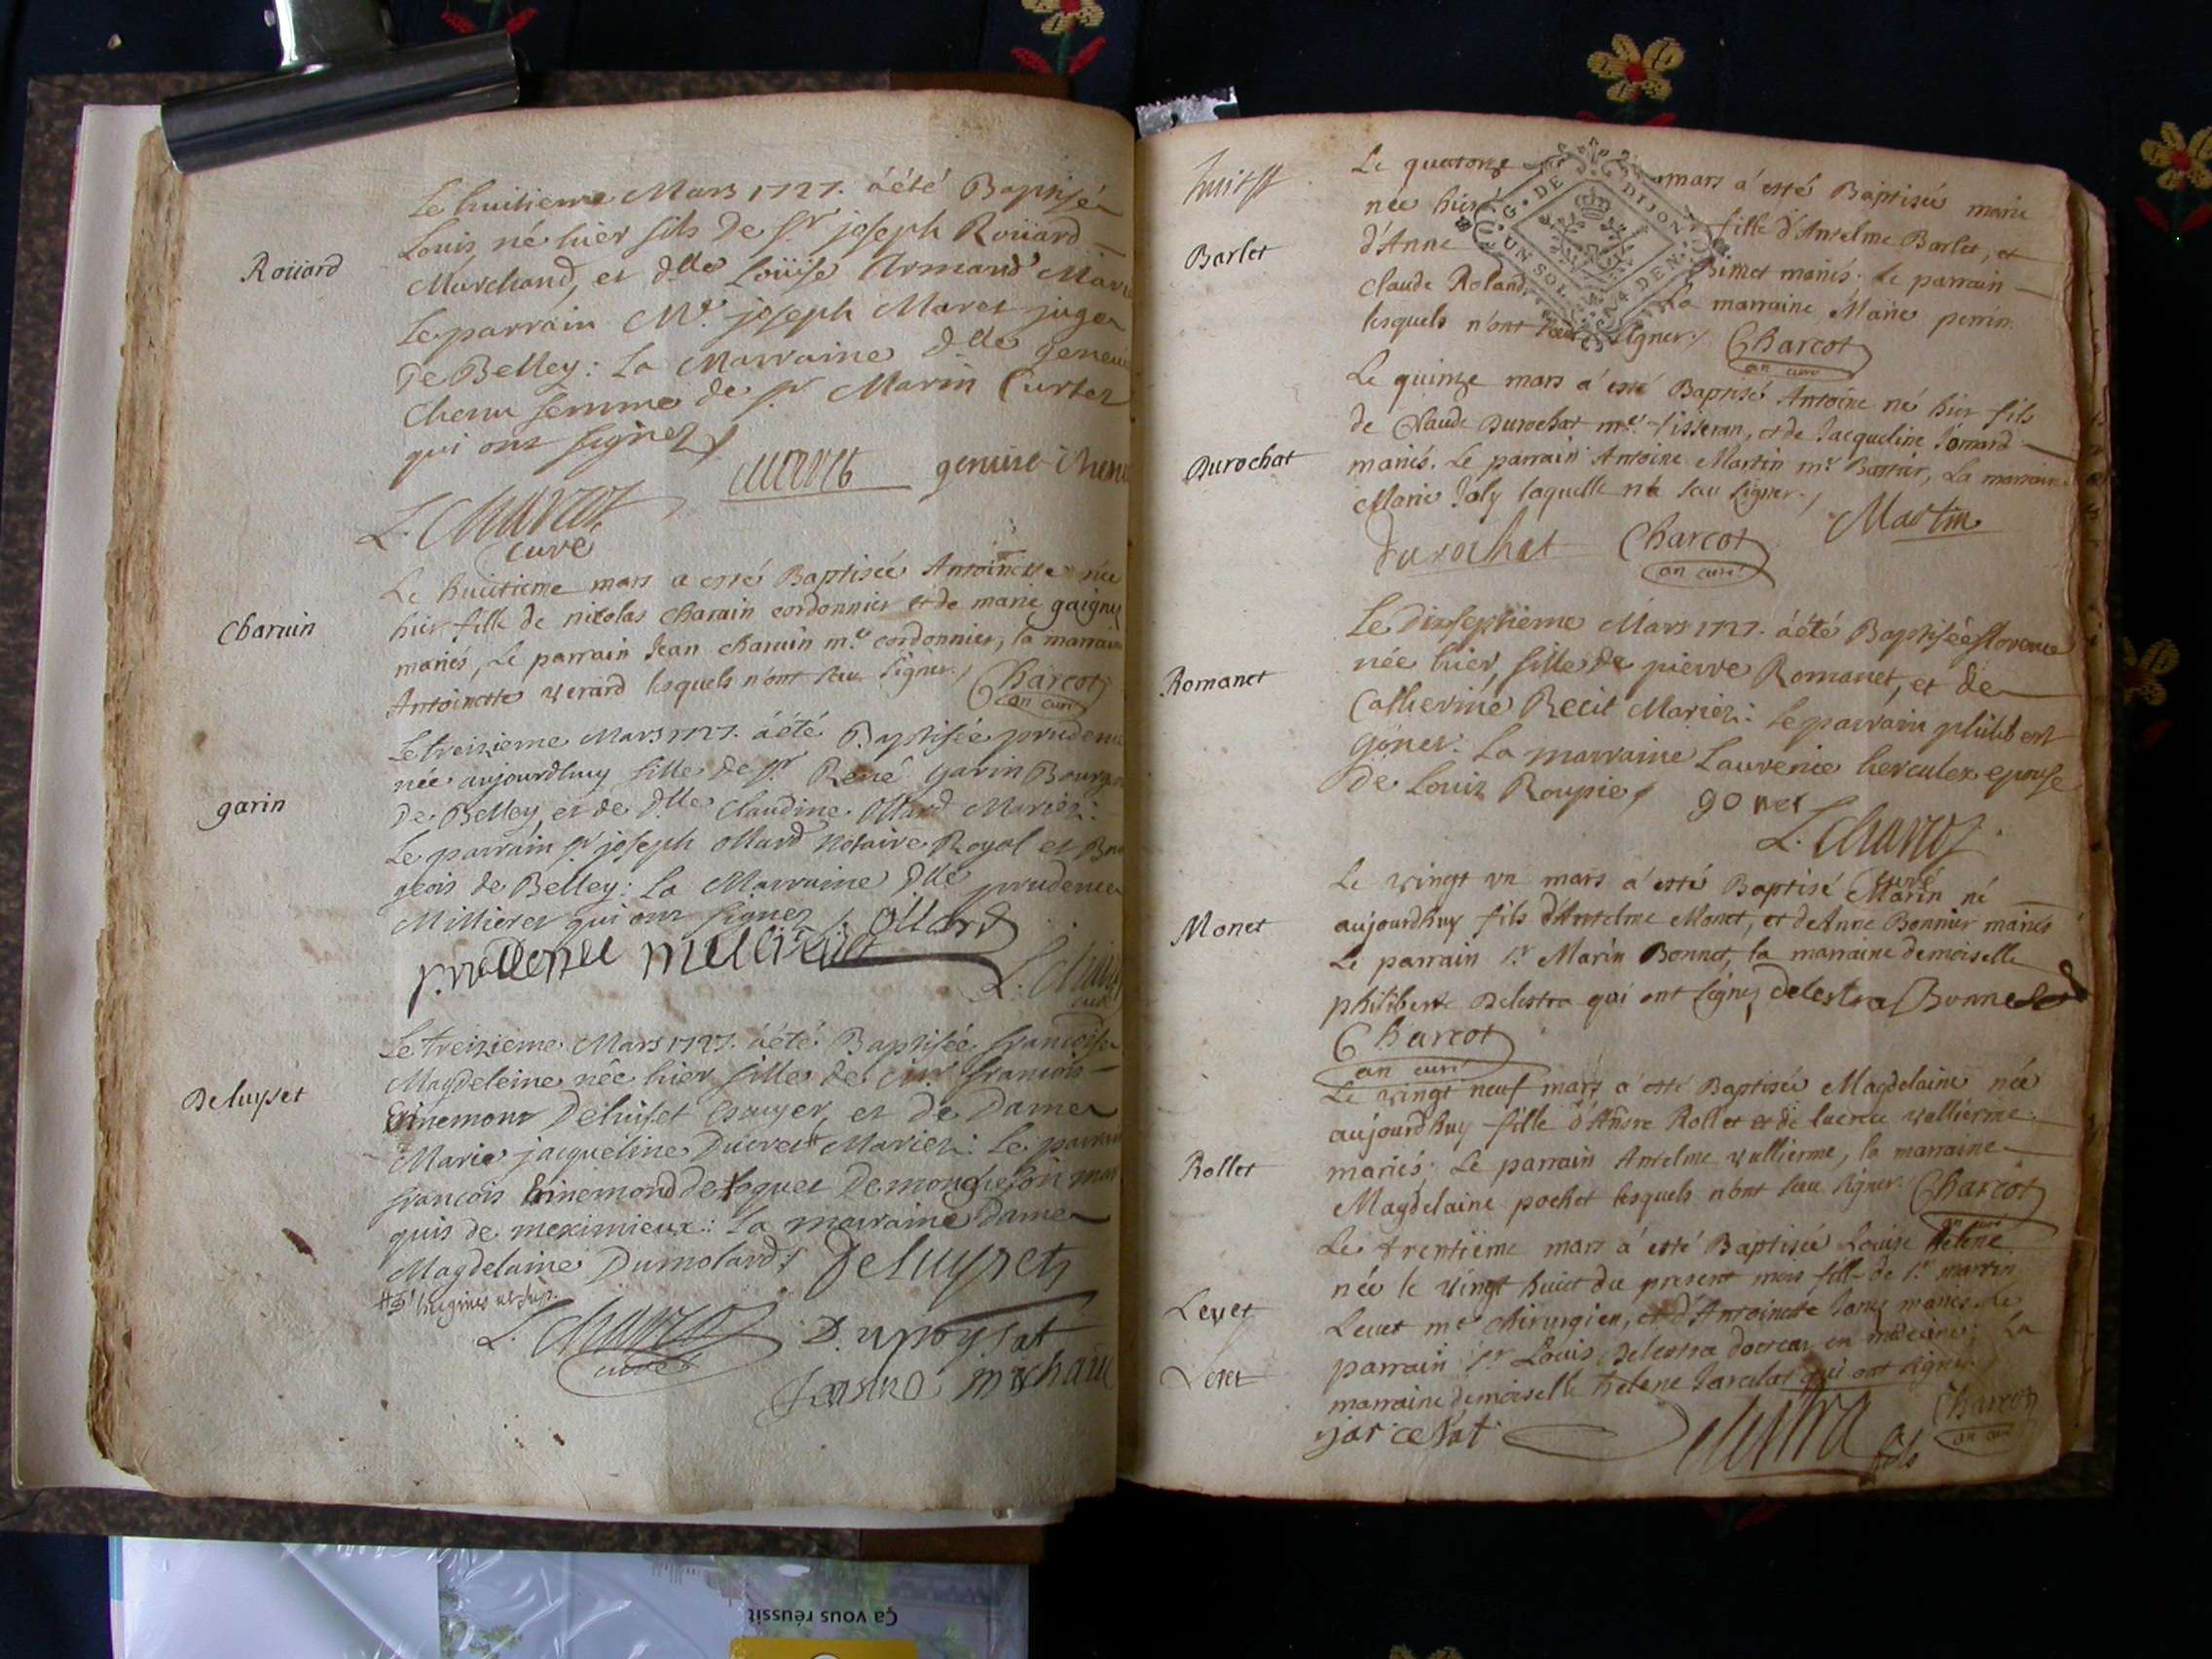 Le huitieme Mars 1727. a été Baptisé
Louis né hier fils de Sr. joseph Roüard
Roüard
Marchand, et dlle Loüise Armand
Le parrain Mr. joseph Maret juge
de Belley: La Marraine dlle
Chenu femme de Sr Marin Curtet
qui ont signez
genuive Chenu
L. Charcot
curé
Le huictieme mars a esté Baptisée Antoinette née
hier fille de nicolas Charuin cordonnier et de marie
Charuin
mariés, Le parrain Jean Charuin me. cordonnier, la marraine
Antoinette verard lesquels n'ont sceu signer.
Charcot
an curé
Le treizieme Mars 1727. a été Baptisée prudence
née aujourdhuy fille de Sr. René Garin
garin
de Belley, et de dlle Claudine Ollard Mariez:
Le parrain Sr joseph ollard notaire Royal et
geois de Belley: La Marraine dlle prudence
Millieret qui ont signez
ollard
prudense
L. Charcot
Le treizieme Mars 1727. a été Baptisée francoise
Magdeleine née hier fille de francois
Deluyset
Ennemond Deluiset Escuyer, et de Dame
Marie jacqueline Ducrest Mariez: Le parrain
francois Ennemond
quis de meximieux: La marraine Dame
Magdelaine Dumolard
Deluyset
L. Charcot
curé
huit
Le quatorze mars a esté Baptisée marie
née hier fille d'Anselme Barlet, et
Barlet
d'Anne mariés: Le parrain
Claude Roland, La marraine Marie perrin
lesquels n'ont sceu signer
Charcot
an curé
G. DE DIJON
UN SOL 4 DEN
Le quinze mars a esté Baptisé Antoine né hier fils
de Claude Durochat me. tisseran, et de Jacqueline
Durochat
mariés. Le parrain Antoine Martin me. La marraine
Marie Joly laquelle n'a sceu signer.
Durochat
Charcot
an curé
Martin
Le dixseptieme Mars 1727. a été Baptisée florence
née hier, fille de pierre Romanet, et de
Romanet
Catherine Recit Mariez: Le parrain philibert
gonet: La marraine Laurence herculex epouse
de Louis Roupie
gonet
L. Charcot
curé
Le vingt un mars a esté Baptisé Marin né
Monet
aujourdhuy fils d'Anselme Monet, et de Anne Bonnier mariés
Le parrain Sr. Marin Bonnet, la marraine demoiselle
philiberte Delestra qui ont signez delestra Bonnet
Charcot
an curé
Le vingt neuf mars a esté Baptisée Magdelaine née
aujourdhuy fille d'André Rollet et de lucrece vullierme
Rollet
mariés: Le parrain Anselme vullierme, la marraine
Magdelaine pochet lesquels n'ont sceu signer
Charcot
an curé
Le trentieme mars a esté Baptisée Louise helene
née le vingt huict du present mois fille de Sr. martin
Levet
Levet me chirurgien, et d'Antoinette mariés. Le
parrain Sr Louis Delestra docteur en médecine; La
Levet
marraine demoiselle helene Jarcelat qui ont signé
jarcelat
delestra
fils
Charcot
an curé
Ça vous réussit